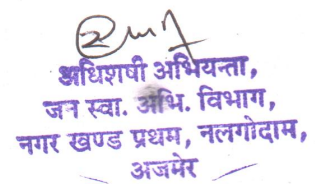 अधिशषी अभियन्ता,
जन स्वा. अभि. विभाग,
नगर खण्ड प्रथम, नलगोदाम,
अजमेर